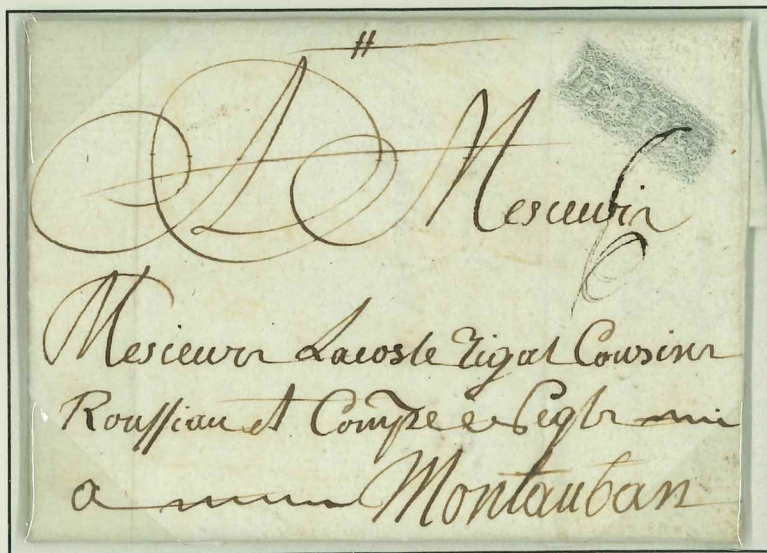 A Mesieurs
6
Mesieurs Lacoste Rigal Cousins
Roussiau et Compe
a Montauban